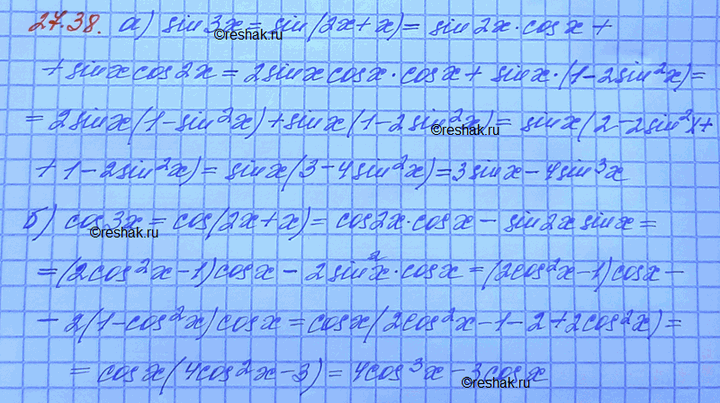 27.38. а) sin 3x = sin(2x+x) = sin 2x·cos x +
©reshak.ru
+ sin x cos 2x = 2 sin x cos x·cos x + sin x·(1-2sin²x) =
= 2 sin x(1-sin²x) + sin x(1-2sin²x) = sin x(2-2sin²x +
©reshak.ru
+ 1-2sin²x) = sin x(3-4sin²x) = 3 sin x - 4 sin³x
б) cos 3x = cos(2x+x) = cos 2x·cos x - sin 2x sin x =
©reshak.ru
= (2cos²x-1)cos x - 2 sin²x·cos x = (2cos²x-1)cos x -
- 2(1-cos²x)cos x = cos x(2cos²x-1-2+2cos²x) =
= cos x(4cos²x-3) = 4cos³x - 3cos x
©reshak.ru